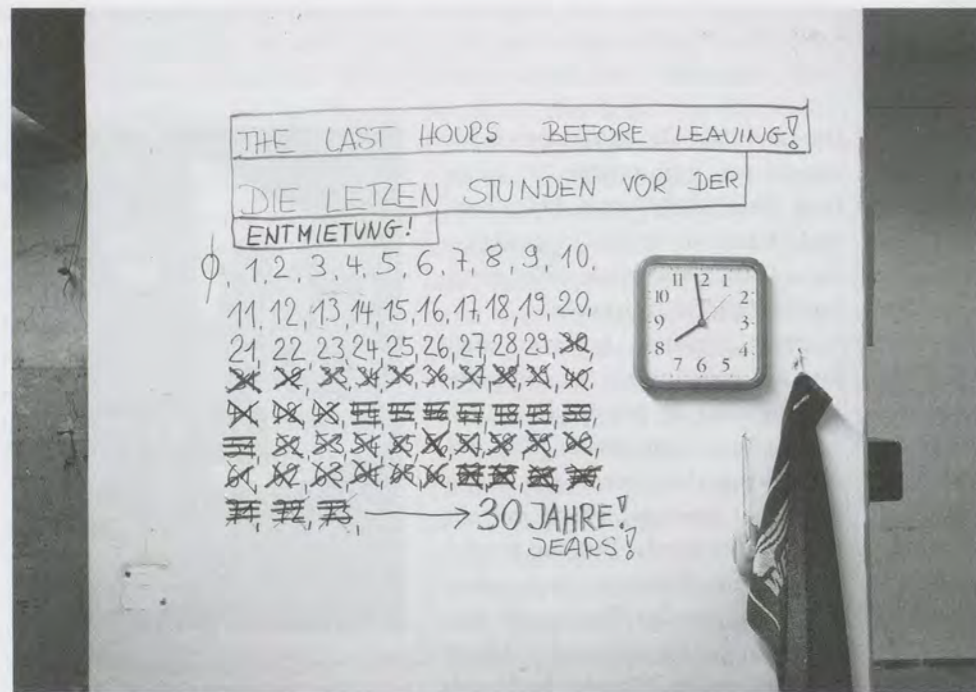 THE LAST HOURS BEFORE LEAVING!
DIE LETZEN STUNDEN VOR DER
ENTMIETUNG!
0, 1, 2, 3, 4, 5, 6, 7, 8, 9, 10,
11, 12, 13, 14, 15, 16, 17, 18, 19, 20,
21, 22, 23, 24, 25, 26, 27, 28, 29, 30,
31, 32, 33, 34, 35, 36, 37, 38, 39, 40,
41, 42, 43, 44, 45, 46, 47, 48, 49, 50,
51, 52, 53, 54, 55, 56, 57, 58, 59, 60,
61, 62, 63, 64, 65, 66, 67, 68, 69, 70,
71, 72, 73, → 30 JAHRE!
JEARS!
12 1 2 3 4 5 6 7 8 9 10 11